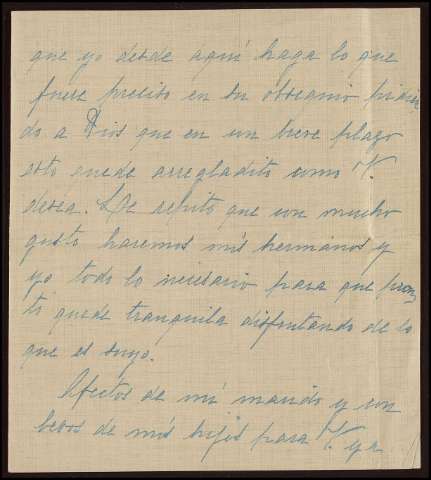 que yo desde aquí haga lo que
fuere preciso en su obsequio pidien
do a Dios que en un breve plazo
esto quede arregladito como V.
desea. Le repito que con mucho
gusto haremos mis hermanos y
yo todo lo necesario para que pron
to quede tranquila disfrutando de lo
que es suyo.
Afectos de mi marido y con
besos de mis hijos para V. ya